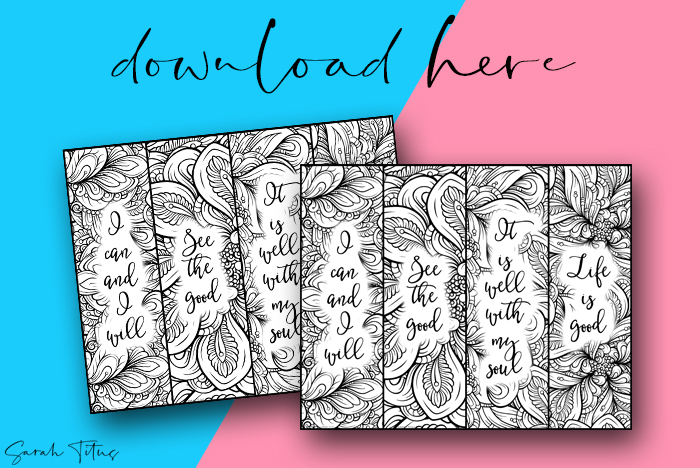 download here
I
can
and
I
will
See
the
good
It
is
well
with
my
soul
I
can
and
I
will
See
the
good
It
is
well
with
my
soul
Life
is
good
Sarah Titus